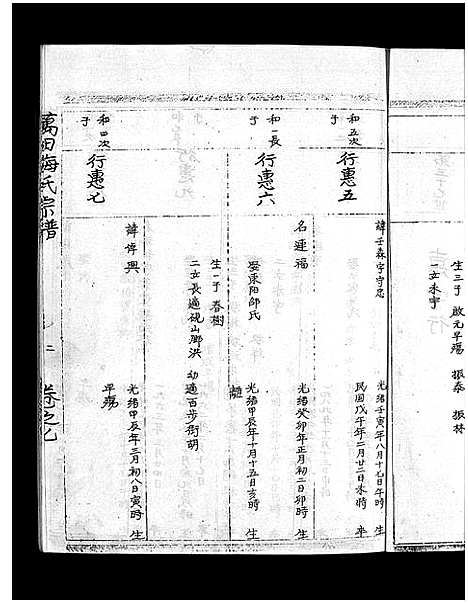 生三子 啟元早殤 振泰 振林
一女未字
和五次
子
行惠五
諱壬森字守忠
光緒壬寅年八月十七日午時 生
民國戊午年二月廿二日未時 卒
和一長
子
行惠六
名連福
光緒癸卯年正月初二日卯時 生
娶東陽邵氏
光緒甲辰年十月十五日亥時 生
生一子 春樹
二女長適硯山腳洪 幼適百步街胡
和四次
子
行惠七
諱偉興
光緒甲辰年三月初八日寅時 生
早殤
萬田海氏宗譜
卷之九